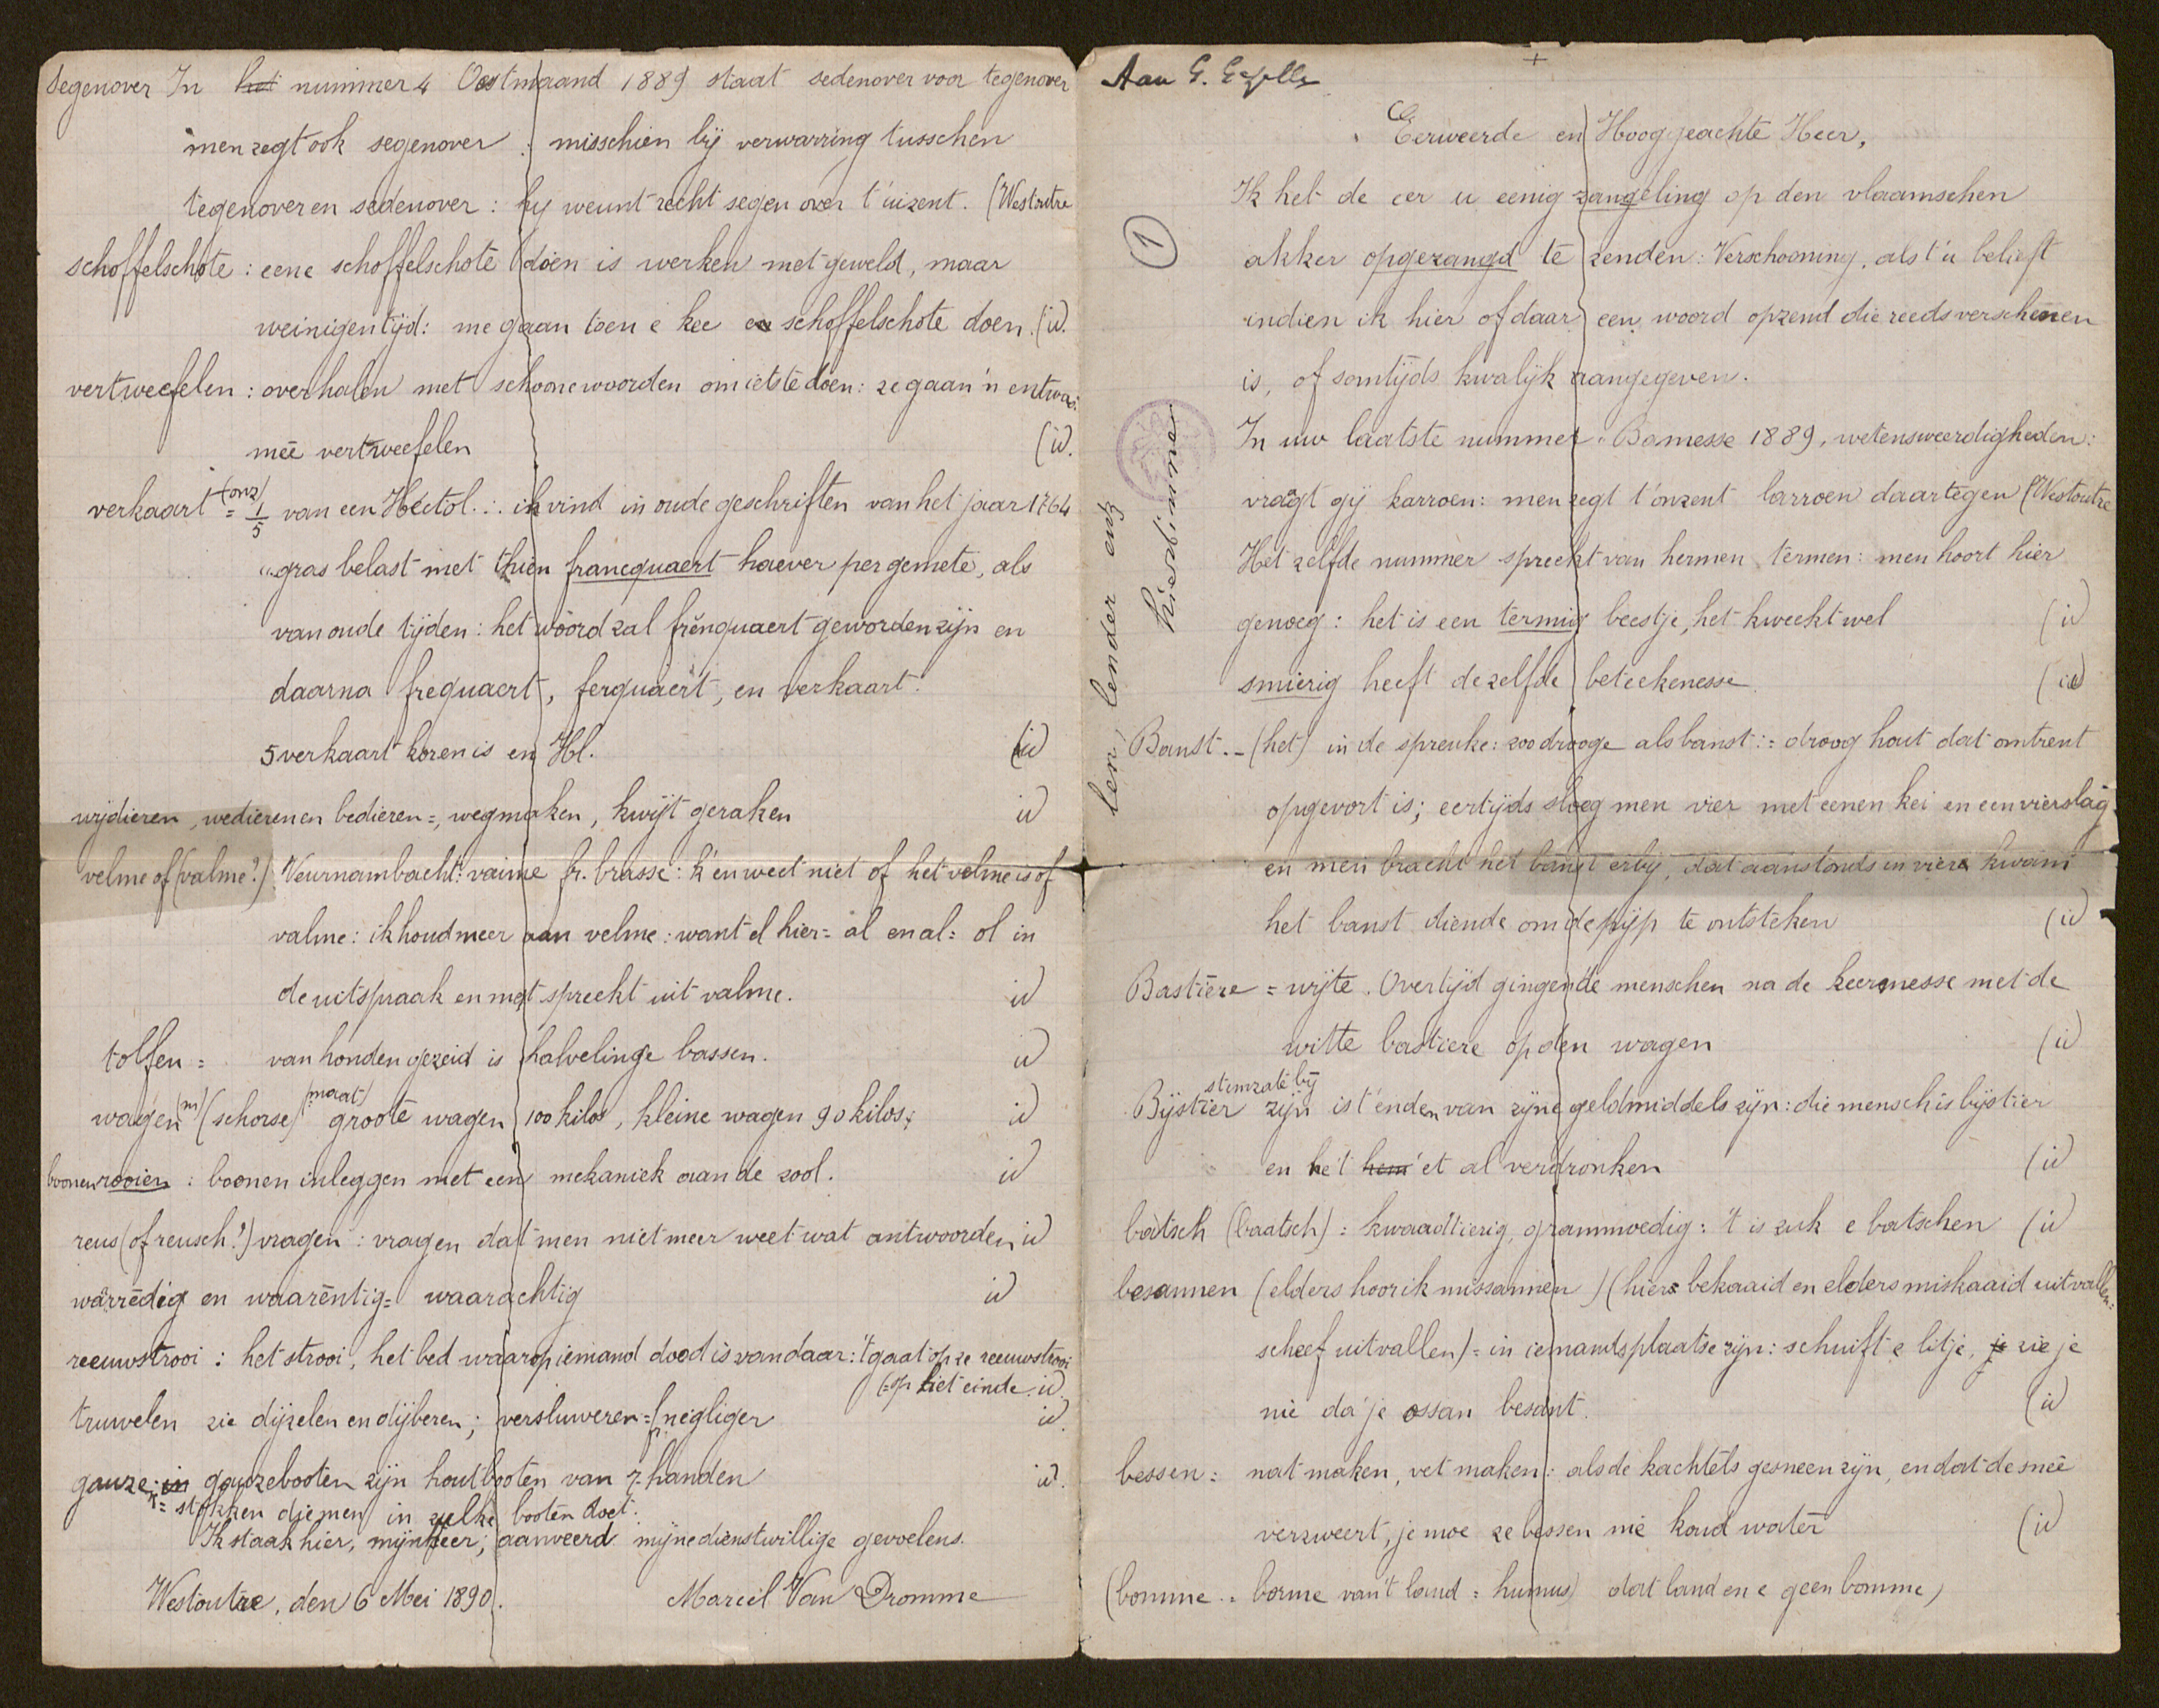 Aan G. Gezelle
+
Eerweerde en Hooggeachte Heer,
Ik heb de eer u eenig zangeling op den vlaamschen
akker opgezangd te zenden: Verschooning, als t'u belieft
indien ik hier of daar een woord opzend die reeds verschenen
is, of somtijds kwalijk aangegeven.
In uw laatste nummer "Bamesse 1889, wetensweerdigheden:
vraagt gij karroen: men zegt t'onzent larroen daartegen (Westoutre
Het zelfde nummer spreekt van hermen termen: men hoort hier
genoeg: het is een termig beestje, het kweekt wel (id
smierig heeft dezelfde beteekenesse. (id
Banst. - (het) in de spreuke: zoo drooge als banst := droog hout dat omtrent
opgevort is; eertijds sloeg men vier met eenen kei en een vierslag
en men bracht het banst erby, dat aanstonds in viere kwam
het banst diende om de pijp te ontsteken (id
Bastiere = wijte. Overtijd gingen de menschen na de keermesse met de
witte bastiere op den wagen (id
stemzate bij
Bijstier zijn is t'enden van zijne geldmiddels zijn: die mensch is bijstier
en he't hem 'et al verdronken (id
batsch (baatsch) = kwaadtierig, grammoedig: 't is zuk e batschen (id
besannen (elders hoor ik missannen) (hier bekaaid en elders miskaaid uitvallen:
scheef uitvallen) = in iemands plaatse zijn: schuift e litje, je zie je
nie da'je ossan besant. (id
bessen: nat maken, vet maken: als de kachtels gesneen zijn, en dat de snee
verzweert, je moe ze bessen mé koud water (id
(bomme = borme van 't land = humus) dat land en e geen bomme)
1
kiezstimme
len, lender enz
Segenover In het nummer 4 Oostmaand 1889 staat sedenover voor tegenover
men zegt ook segenover : misschien bij verwarring tusschen
tegenover en sedenover: hy weunt recht segen over t'uizent. (Westoutre
schoffelschote: eene schoffelschote doen is werken met geweld, maar
weinigen tijd: me gaan toen e kee en schoffelschote doen. (id.
vertweefelen: overhalen met schoone woorden om iets te doen: ze gaan 'n entwa
mee vertweefelen (id.
(onz)
verkaart = 1/5 van een Hectol.: ik vind in oude geschriften van het jaar 1764
"gras belast met thien francquaert haever per gemete, als
van oude tijden: het woord zal frenquaert geworden zijn en
daarna frequaert, ferquaert, en verkaart.
5 verkaart koren is en Hl. (id
wijdieren, wedieren en bedieren =, wegmaken, kwijt geraken id
velme of (valme?) Veurnambacht: vaime fr. brasse: k'en weet niet of het velme is of
valme: ik houd meer aan velme: want el hier = al en al = ol in
de uitspraak en met spreekt uit valme. id
tolfen = van honden gezeid is halvelinge bassen. id
wagen (m) (schorse) (maat) groote wagen 100 kilos, kleine wagen 90 kilos; id
boonen rooien : boonen inleggen met een mekaniek aan de zool. id
reus (of reusch?) vragen: vragen dat men niet meer weet wat antwoorden id
warrédig en waaréntig = waarachtig id
reeuwstrooi: het strooi, het bed waarop iemand dood is vandaar: 't gaat op ze reeuwstrooi
(=op het einde. id.
truwelen zie dijzelen en dijberen; versluweren = fr négliger id.
gauze: in gauzebooten zijn houtbooten van 7 handen id.
+= stokken die men in zulke booten doet.
Ik staak hier, mijnheer; aanveerd mijne dienstwillige gevoelens.
Westoutre, den 6 Mei 1890. Marcel Van Dromme